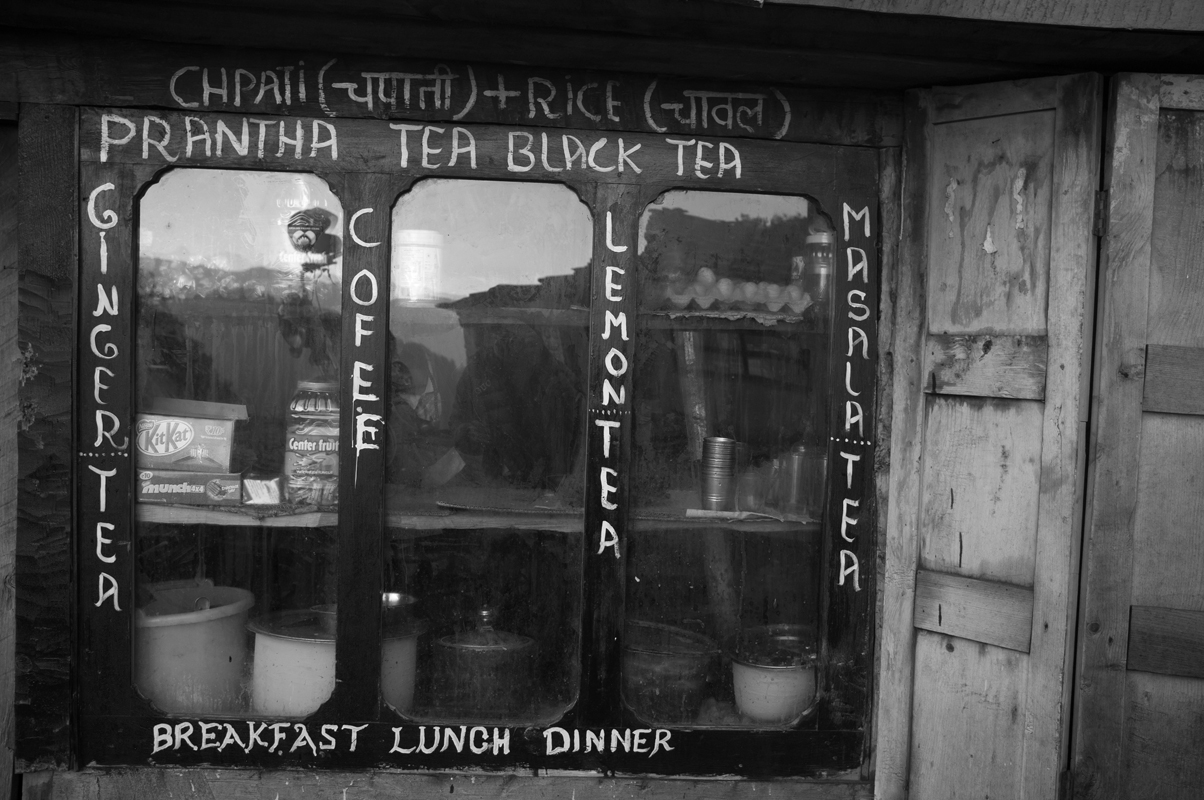 CHPATi (चपाती) + RiCE (चावल)
PRANTHA TEA BLACK TEA
GINGER TEA
COFEE
LEMON TEA
MASALA TEA
KitKat
munch
Center fruit
BREAKFAST LUNCH DINNER